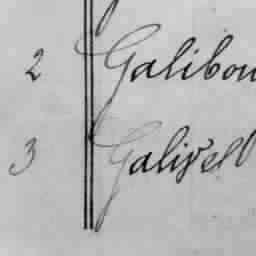 2 Galibou
3 Galivel